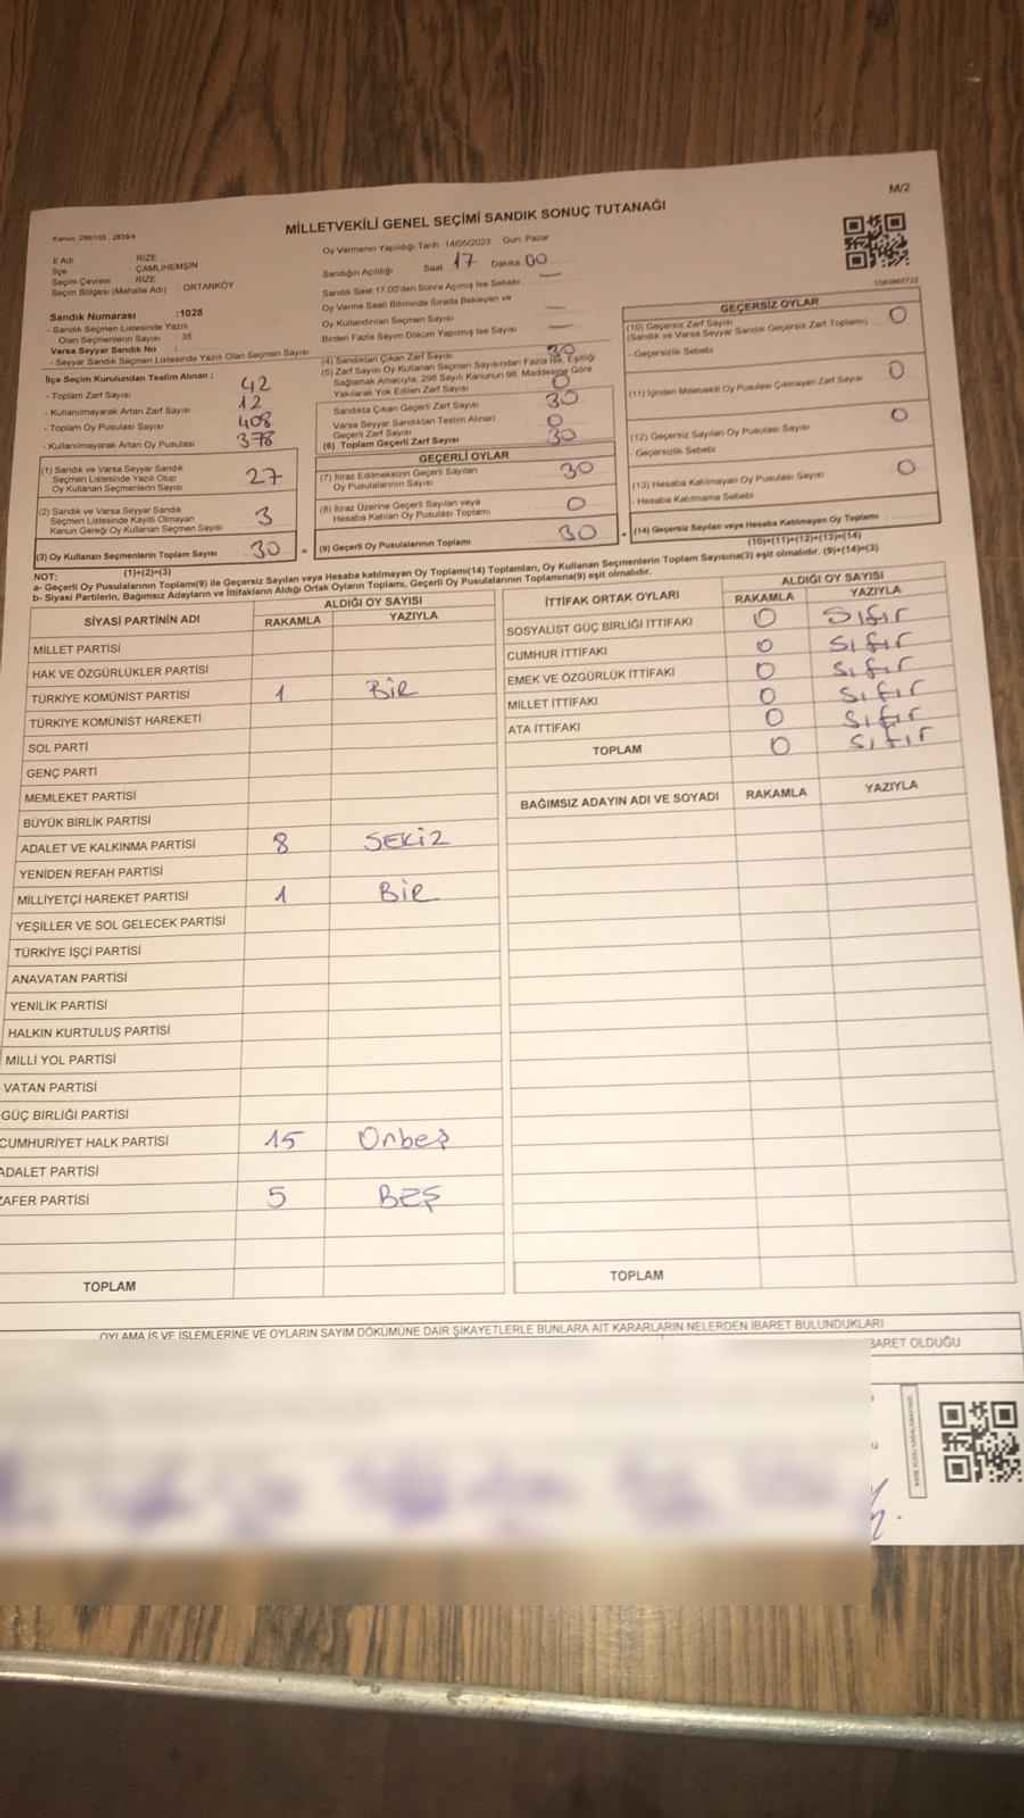 M/2
MİLLETVEKİLİ GENEL SEÇİMİ SANDIK SONUÇ TUTANAĞI
Oy Vermenin Yapıldığı Tarih 14/05/2023 Gün: Pazar
İl Adı RİZE
İlçe ÇAMLIHEMŞİN
Seçim Çevresi RİZE
Seçim Bölgesi (Mahalle Adı) ORTANKÖY
Sandığın Açılışı Saat 17 Dakika 00
Sandık Saat 17.00'den Sonra Açılmış İse Sebebi —
Oy Verme Saati Bitiminde Sırada Bekleyen ve
Oy Kullandırılan Seçmen Sayısı —
Birden Fazla Sayım Döküm Yapılmış İse Sayısı —
Sandık Numarası :1028
- Sandık Seçmen Listesinde Yazılı
Olan Seçmenlerin Sayısı : 35
Varsa Seyyar Sandık No :
- Seyyar Sandık Seçmen Listesinde Yazılı Olan Seçmen Sayısı
İlçe Seçim Kurulundan Teslim Alınan :
- Toplam Zarf Sayısı 42
- Kullanılmayarak Artan Zarf Sayısı 12
- Toplam Oy Pusulası Sayısı 408
- Kullanılmayarak Artan Oy Pusulası 378
(1) Sandık ve Varsa Seyyar Sandık
Seçmen Listesinde Yazılı Olup
Oy Kullanan Seçmenlerin Sayısı 27
(2) Sandık ve Varsa Seyyar Sandık
Seçmen Listesinde Kayıtlı Olmayan
Kanun Gereği Oy Kullanan Seçmen Sayısı 3
(3) Oy Kullanan Seçmenlerin Toplam Sayısı 30
(1)+(2)=(3)
(4) Sandıktan Çıkan Zarf Sayısı 30
(5) Zarf Sayısı Oy Kullanan Seçmen Sayısından Fazla ise, Eşitliği
Sağlamak Amacıyla, 298 Sayılı Kanunun 98. Maddesine Göre
Yakılarak Yok Edilen Zarf Sayısı 0
Sandıkta Çıkan Geçerli Zarf Sayısı 30
Varsa Seyyar Sandıktan Teslim Alınan
Geçerli Zarf Sayısı 0
(6) Toplam Geçerli Zarf Sayısı 30
GEÇERLİ OYLAR
(7) İtiraz Edilmeksizin Geçerli Sayılan
Oy Pusulalarının Sayısı 30
(8) İtiraz Üzerine Geçerli Sayılan veya
Hesaba Katılan Oy Pusulası Toplamı 0
(9) Geçerli Oy Pusulalarının Toplamı 30
GEÇERSİZ OYLAR
(10) Geçersiz Zarf Sayısı 0
(Sandık ve Varsa Seyyar Sandık Geçersiz Zarf Toplamı)
- Geçersizlik Sebebi
(11) İçinden Milletvekili Oy Pusulası Çıkmayan Zarf Sayısı 0
(12) Geçersiz Sayılan Oy Pusulası Sayısı 0
- Geçersizlik Sebebi
(13) Hesaba Katılmayan Oy Pusulası Sayısı 0
- Hesaba Katılmama Sebebi
(14) Geçersiz Sayılan veya Hesaba Katılmayan Oy Toplamı
(10)+(11)+(12)+(13)=(14)
NOT:
a- Geçerli Oy Pusulalarının Toplamı(9) ile Geçersiz Sayılan veya Hesaba katılmayan Oy Toplamı(14) Toplamları, Oy Kullanan Seçmenlerin Toplam Sayısına(3) eşit olmalıdır. (9)+(14)=(3)
b- Siyasi Partilerin, Bağımsız Adayların ve İttifakların Aldığı Ortak Oyların Toplamı, Geçerli Oy Pusulalarının Toplamına(9) eşit olmalıdır.
SİYASİ PARTİNİN ADI ALDIĞI OY SAYISI
RAKAMLA YAZIYLA
MİLLET PARTİSİ
HAK VE ÖZGÜRLÜKLER PARTİSİ
TÜRKİYE KOMÜNİST PARTİSİ 1 Bir
TÜRKİYE KOMÜNİST HAREKETİ
SOL PARTİ
GENÇ PARTİ
MEMLEKET PARTİSİ
BÜYÜK BİRLİK PARTİSİ
ADALET VE KALKINMA PARTİSİ 8 SEKİZ
YENİDEN REFAH PARTİSİ
MİLLİYETÇİ HAREKET PARTİSİ 1 Bir
YEŞİLLER VE SOL GELECEK PARTİSİ
TÜRKİYE İŞÇİ PARTİSİ
ANAVATAN PARTİSİ
YENİLİK PARTİSİ
HALKIN KURTULUŞ PARTİSİ
MİLLİ YOL PARTİSİ
VATAN PARTİSİ
GÜÇ BİRLİĞİ PARTİSİ
CUMHURİYET HALK PARTİSİ 15 Onbeş
ADALET PARTİSİ
ZAFER PARTİSİ 5 BEŞ
TOPLAM
İTTİFAK ORTAK OYLARI ALDIĞI OY SAYISI
RAKAMLA YAZIYLA
SOSYALİST GÜÇ BİRLİĞİ İTTİFAKI 0 Sıfır
CUMHUR İTTİFAKI 0 Sıfır
EMEK VE ÖZGÜRLÜK İTTİFAKI 0 Sıfır
MİLLET İTTİFAKI 0 Sıfır
ATA İTTİFAKI 0 Sıfır
TOPLAM 0 Sıfır
BAĞIMSIZ ADAYIN ADI VE SOYADI RAKAMLA YAZIYLA
TOPLAM
OYLAMA İŞ VE İŞLEMLERİNE VE OYLARIN SAYIM DÖKÜMÜNE DAİR ŞİKAYETLERLE BUNLARA AİT KARARLARIN NELERDEN İBARET BULUNDUKLARI
BARET OLDUĞU